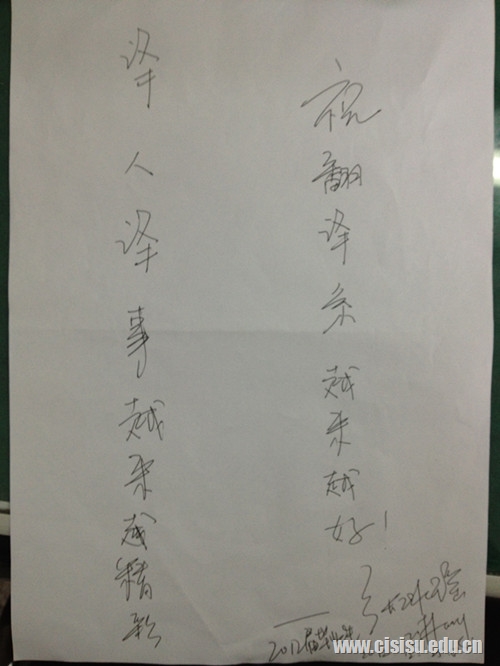 祝翻译系越来越好！
译人译事越来越精彩
——2012届毕业生
www.cisisu.edu.cn